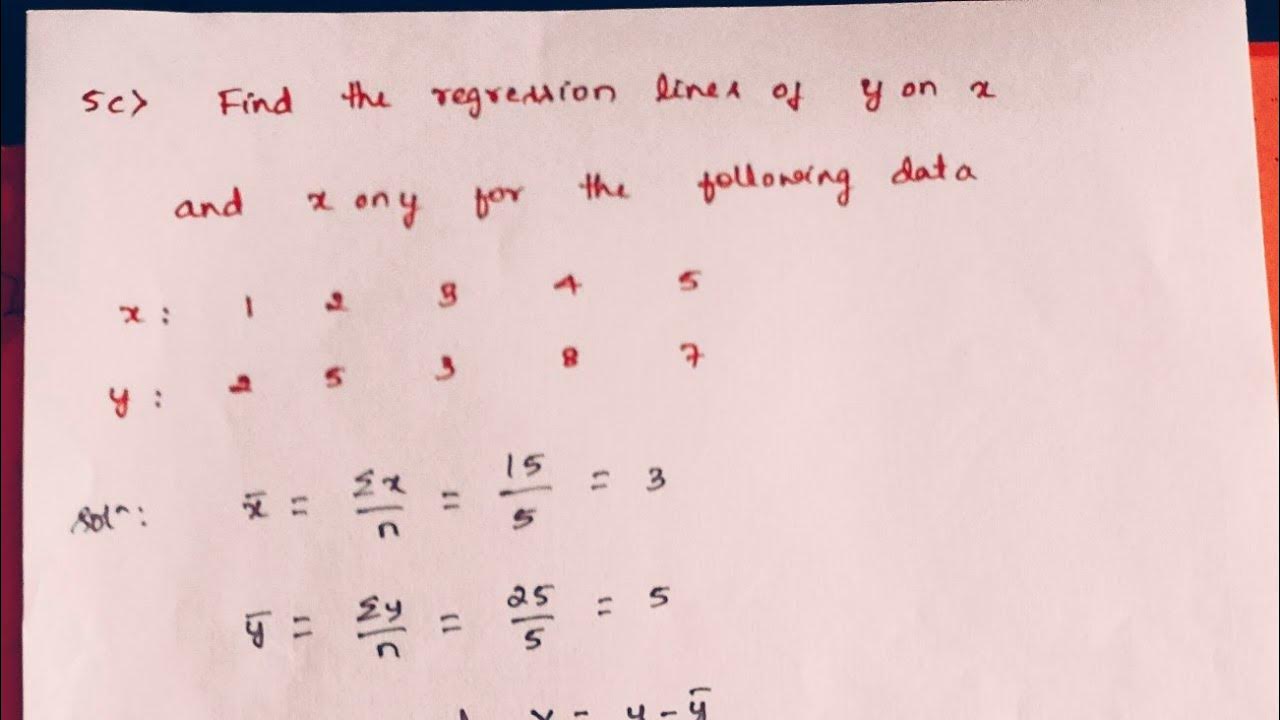 5c> Find the regression lines of y on x
and x on y for the following data
x : 1 2 3 4 5
y : 2 5 3 8 7
Solⁿ: x̄ = Σx/n = 15/5 = 3
ȳ = Σy/n = 25/5 = 5
Y = y - ȳ